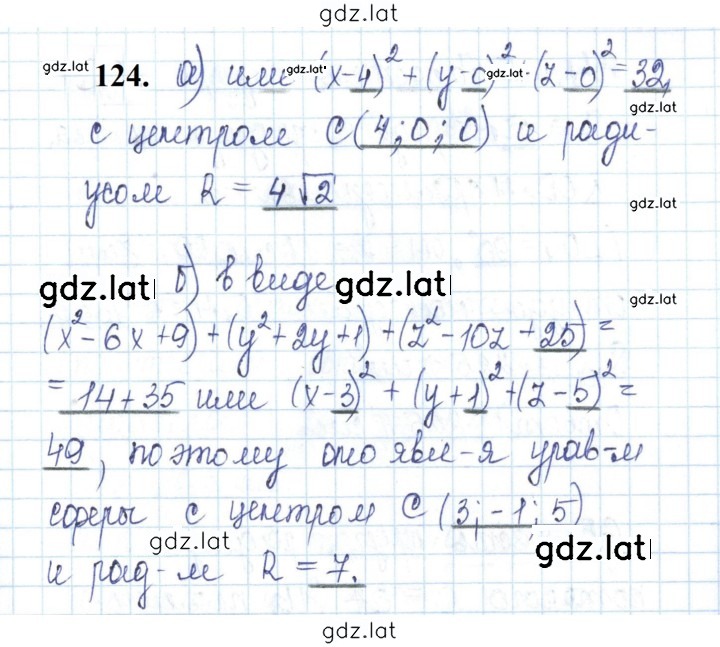 gdz.lat
gdz.lat 124. а) или gdz.lat (x-4)² + (y-0)² gdz.lat (z-0)² = 32,
с центром C(4;0;0) и ради-
усом R = 4√2 gdz.lat
gdz.lat б) в виде gdz.lat gdz.lat
(x²-6x+9)+(y²+2y+1)+(z²-10z+25)=
= 14+35 или (x-3)² + (y+1)²+(z-5)²=
49, поэтому оно явл-я урав-м
сферы с центром C (3;-1;5)
gdz.lat gdz.lat
и рад-м R = 7.
gdz.lat